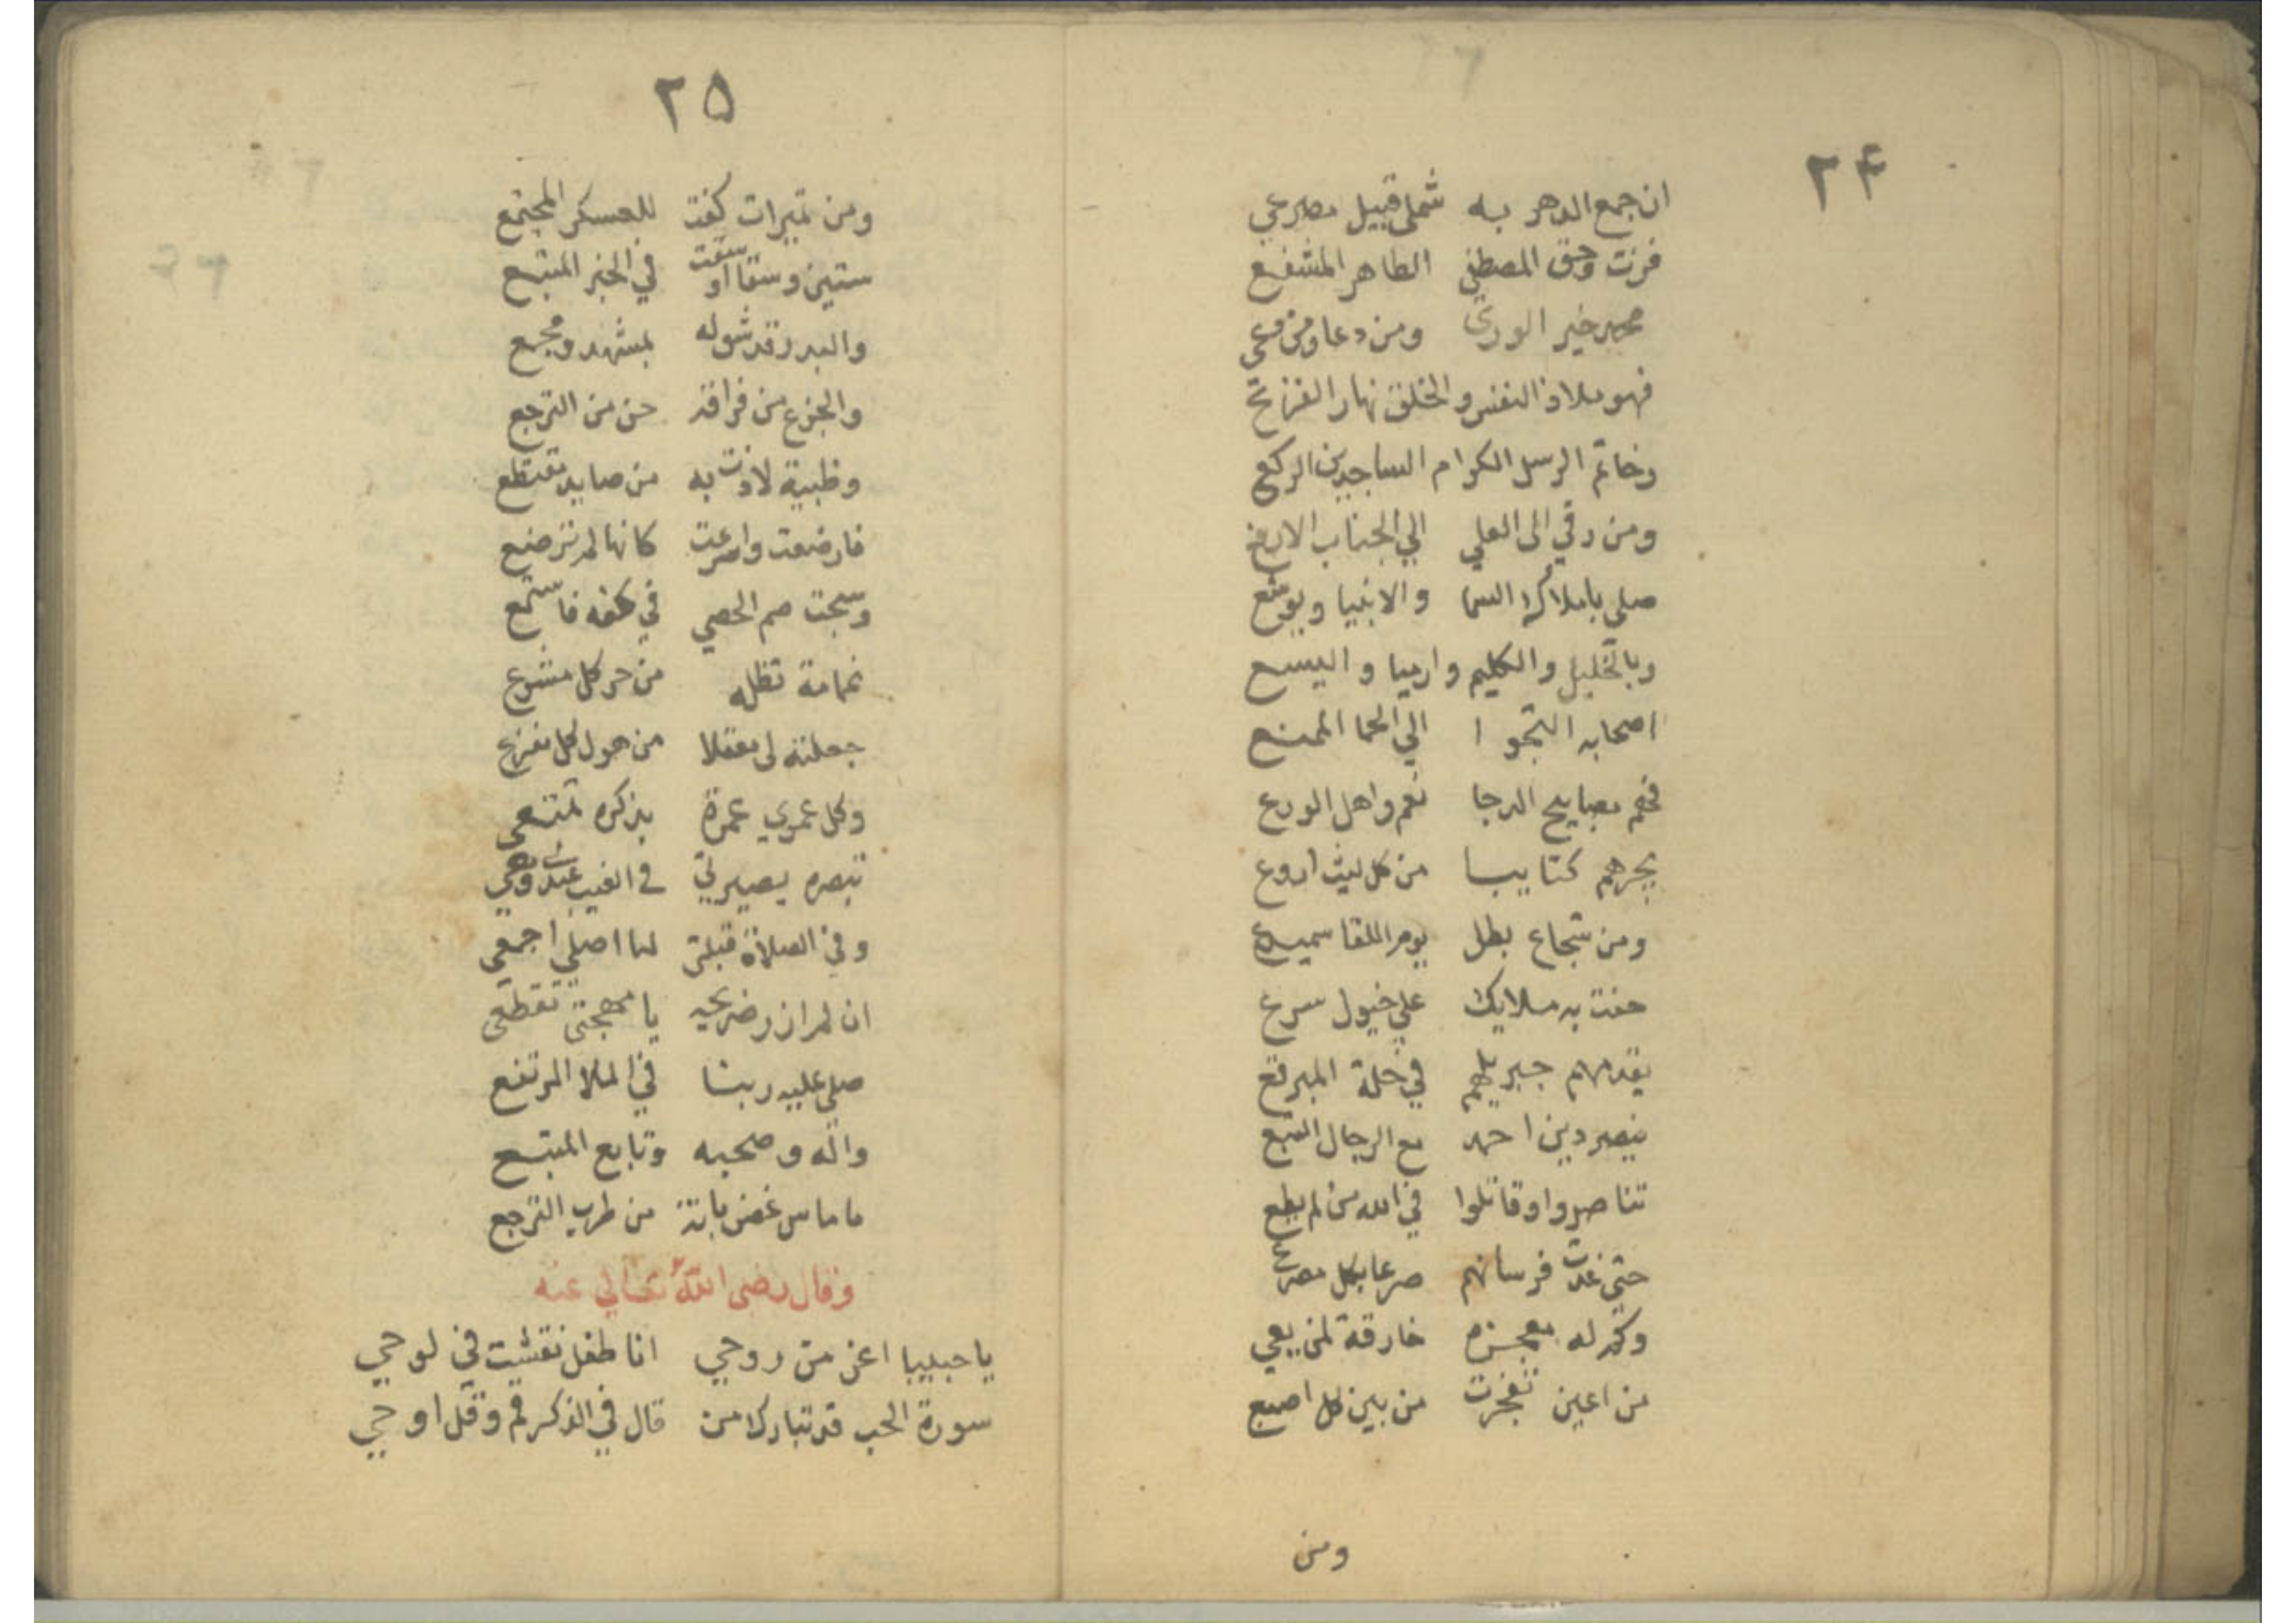 ٢٤
ان جمع الدهر به شملي قبيل مصرعي
فزت وحق المصطفي الطاهر المشفع
محمد خير الوري ومن دعا ومن وعي
فهو ملاذ النفس والخلق نهار الفزع
وخاتم الرسل الكرام الساجدين الركع
ومن رقي الى العلي الي الجناب الارفع
صلى باملاك السما والانبيا ويوشع
وبالخليل والكليم وارميا واليسع
اصحابه التجوا الي الحما الممنع
فهم مصابيح الدجا نعم واهل الورع
يجرهم كتايبا من كل ليث اروع
ومن شجاع بطل يوم اللقا سميدع
حفت به ملايك علي خيول سرع
يقدمهم جبريلهم في حلة المبرقع
ينصر دين احمد مع الرجال التبع
تناصروا وقاتلوا في الله من لم يطع
حتي غدت فرسانهم صرعا بكل مصرع
وكم له معجزه خارقة لمن يعي
من اعين تفجرت من بين كل اصبع
ومن
٢٥
ومن تميرات كفت للعسكر المجتمع
ستين وسقا او سقت في الخبر المتبع
والبدر قد شق له بمشهد ومجمع
والجزع من فراقه حن من الترجع
وظبية لاذت به من صايد مقتطع
فارضعت واسرعت كانها لم ترضع
وسبحت صم الحصي في كفه فاستمع
غمامة تظله من حر كل مشرع
جعلته لي معقلا من هول كل مفزع
وكل عمري عمرة بذكره تمتعي
تبصره بصيرتي في الغيب عند وهجي
وفي الصلاة قبلتي لما اصلي اجمعي
ان لم ازر ضريحه يا مهجتي تقطعي
صلي عليه ربنا في الملا المرتفع
واله وصحبه وتابع المتبع
ما ماس غصن بانة من طرب الترجع
وقال رضى الله تعالي عنه
يا حبيبا اعز من روحي انا طفل نقشت في لوحي
سورة الحب قد تبارك من قال في الذكر قم وقل اوحي